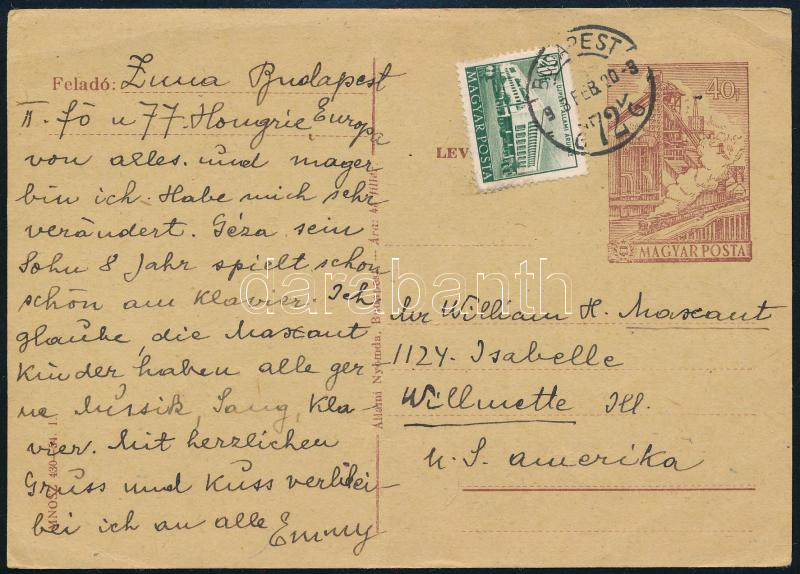 Feladó: Zuna Budapest
II. fö u 77. Hongrie, Europa
von alles. und mager
bin ich. Habe mich sehr
verändert. Géza sein
Sohn 8 Jahr spielt schon
schön am Klavier. Ich
glaube, die Maxant
Kinder haben alle ger
ne Mussik, Sang, Kla-
vier. Mit herzlichen
Gruss und Kuss verblei-
bei ich an alle
Emmy
MNOSZ 430-54. 1.
Állami Nyomda, Budapest. — Ára: 40 fillér
LEV
MAGYAR POSTA
BUDAPEST
FEB. 20
72
40f
MAGYAR POSTA
Mr William H. Maxant
1124. Isabelle
Willmette Ill.
U. S. amerika
darabanth